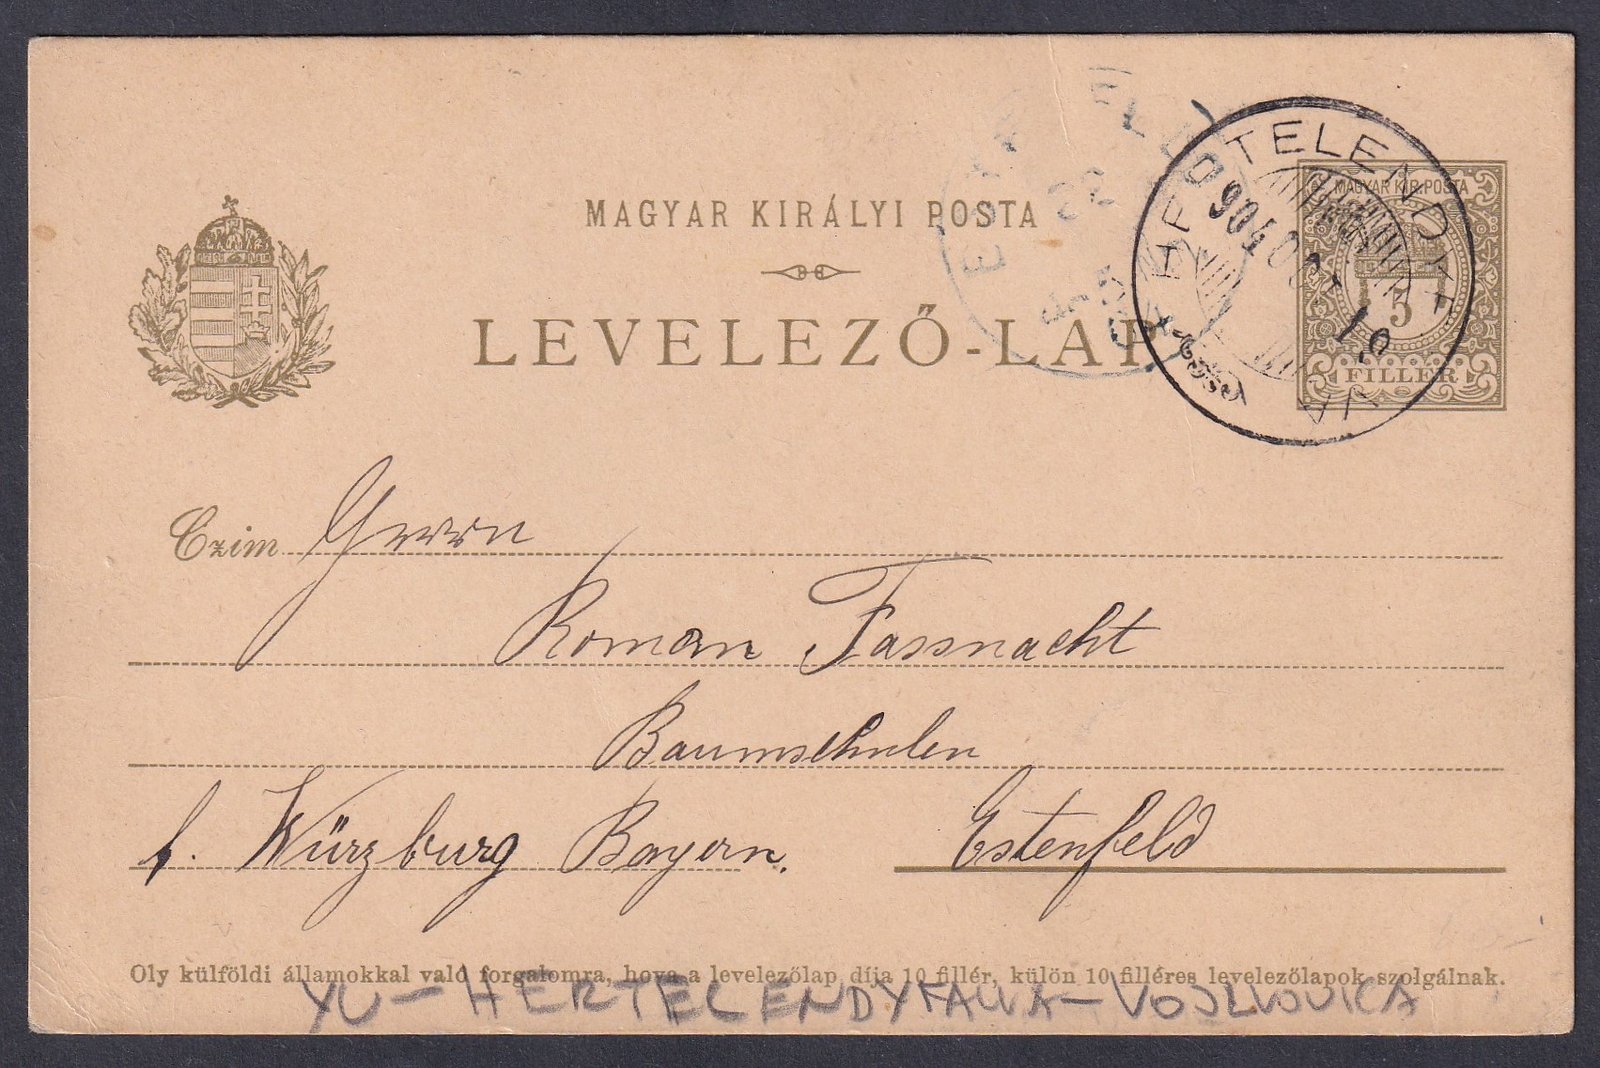 MAGYAR KIRÁLYI POSTA
LEVELEZŐ-LAP
MAGYAR KIR. POSTA
5
FILLÉR
904 OCT 19
Czim Herrn
Roman Fassnacht
Baumschulen
b. Würzburg Bayern. Estenfeld
Oly külföldi államokkal való forgalomra, hova a levelezőlap díja 10 fillér, külön 10 filléres levelezőlapok szolgálnak.
YU - HERTELENDYFALVA -